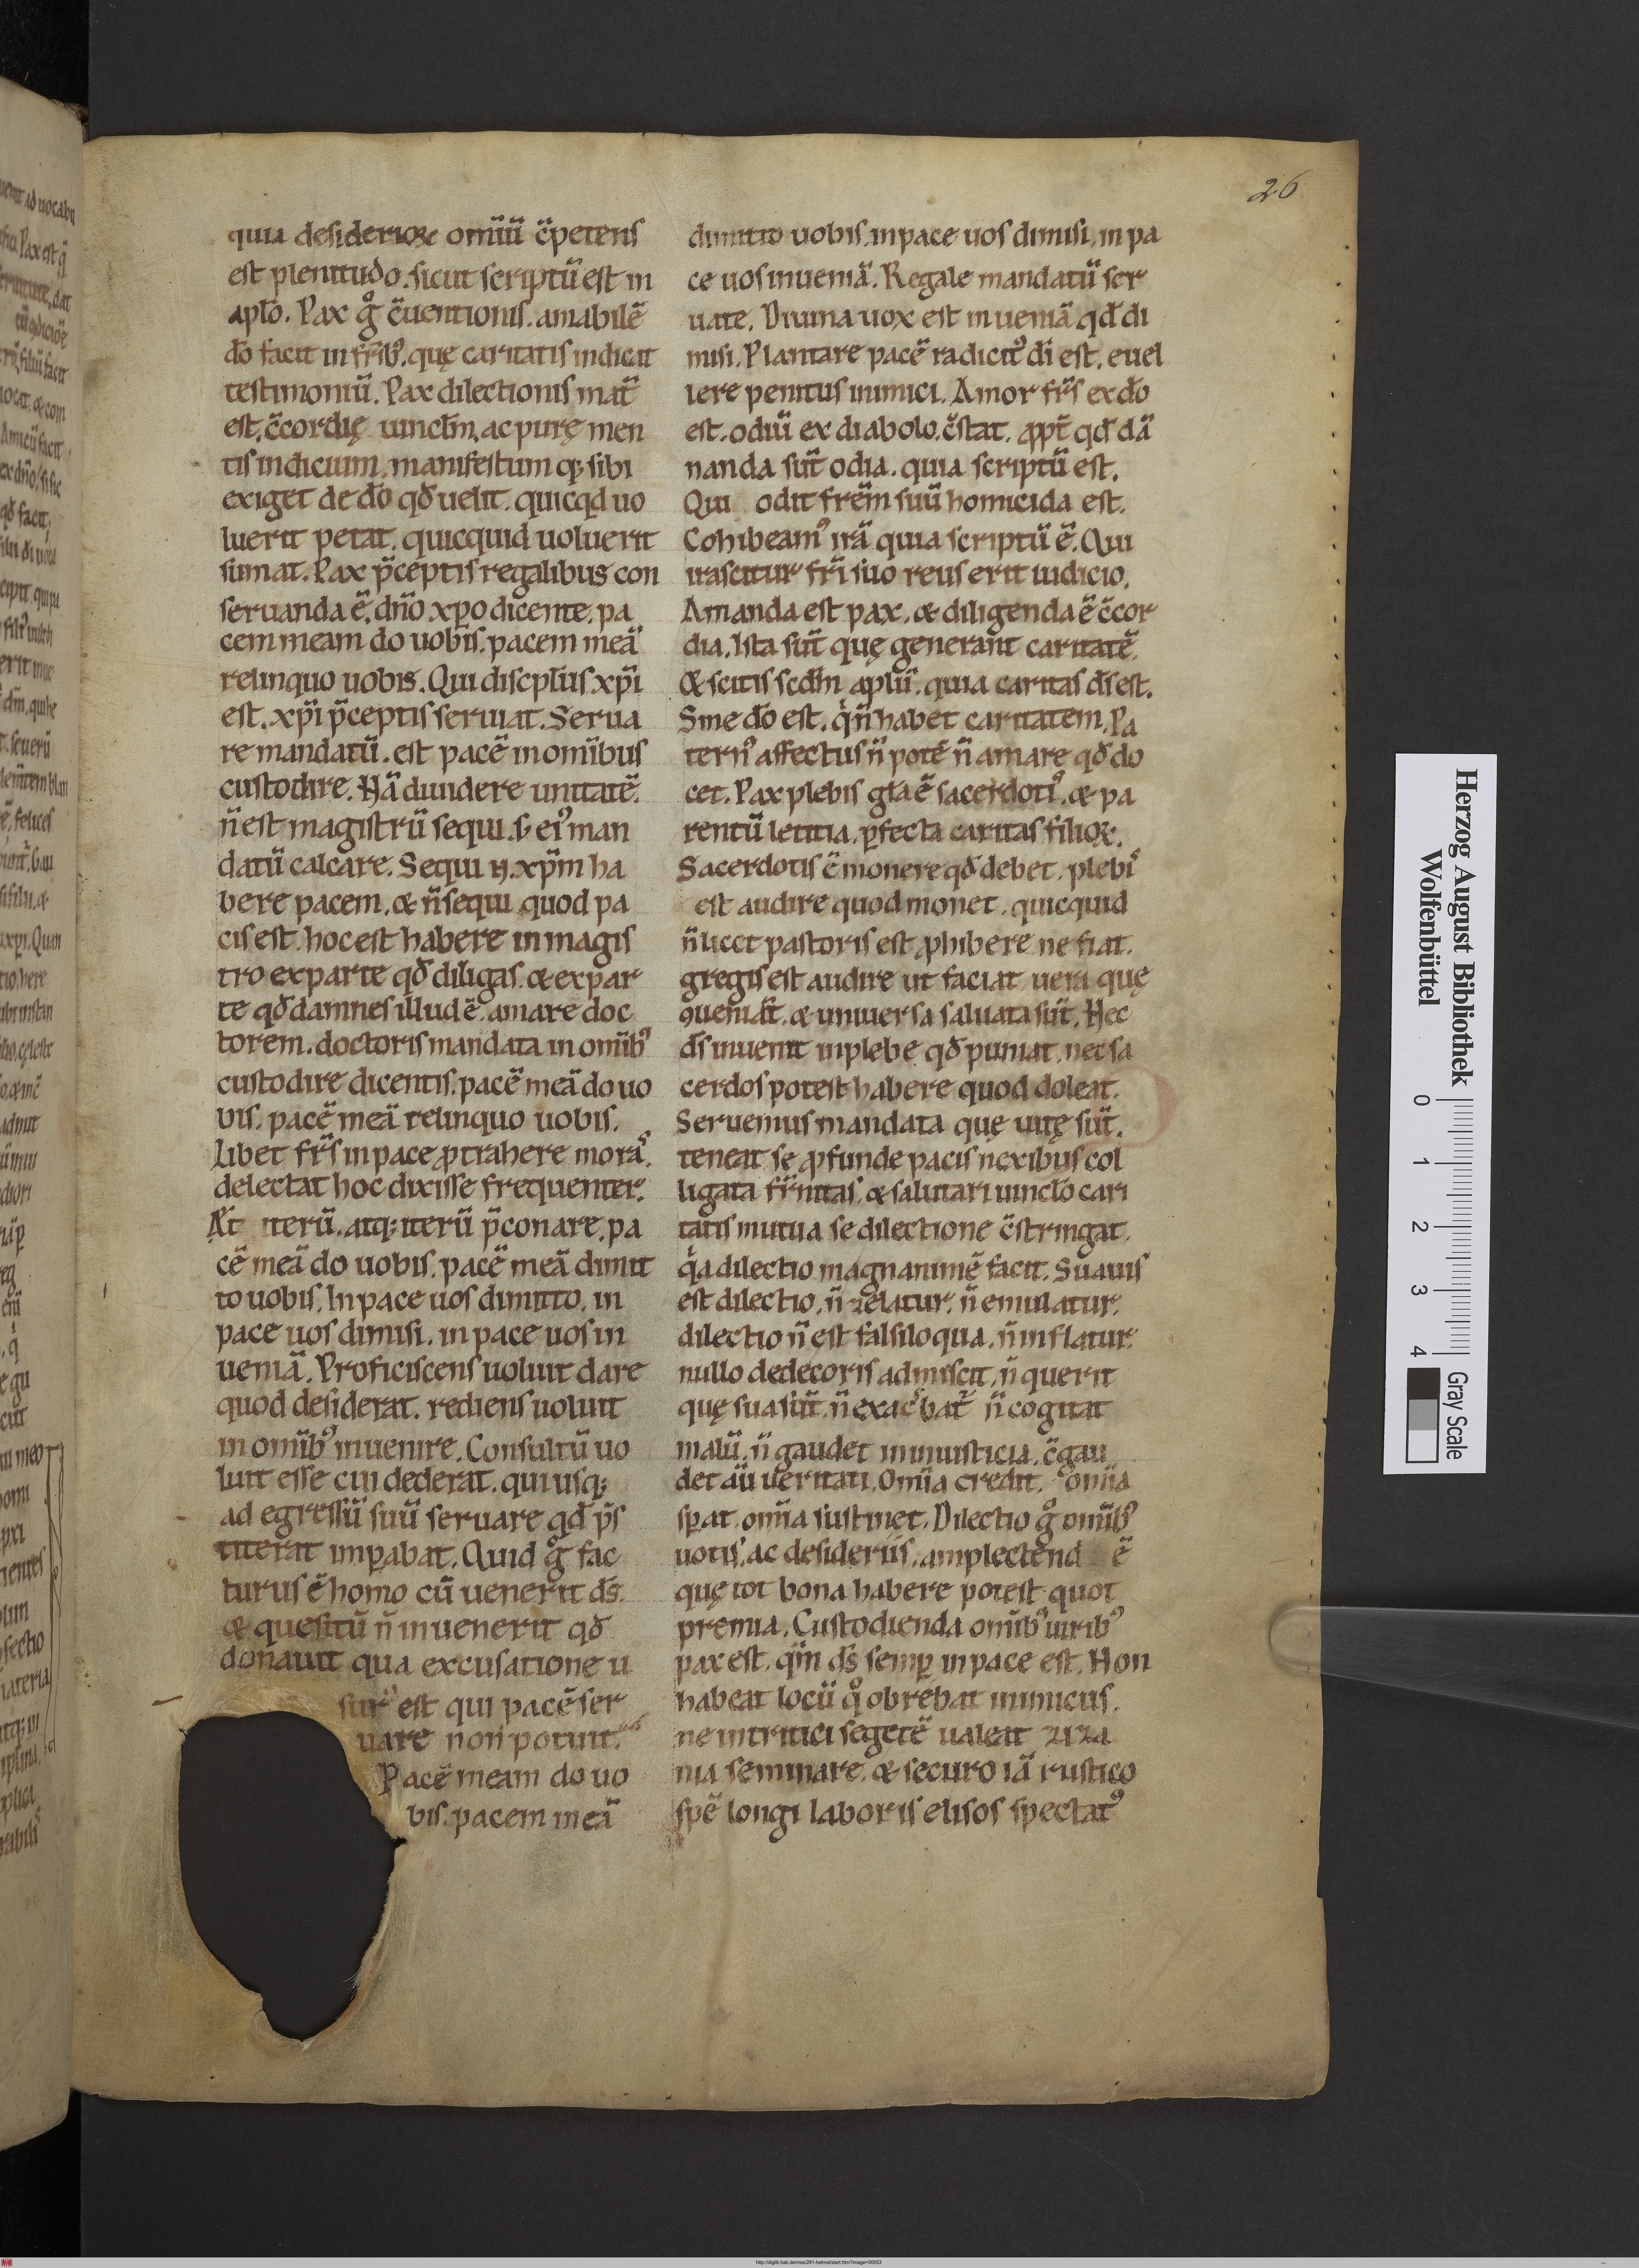 26
quia desiderioꝝ om̄iū c̄petens
est plenitudo. sicut scriptū est in
aplo. Pax gͦ c̄uentionis. amabilē
dō facit in fr̄ib9. quę caritatis indicat
testimoniū. Pax dilectionis mat̄
est. c̄cordię uincłm. ac purę men
tis indicium. manifestum q; sibi
exiget de dō qđ uelit. quicqd uo
luerit petat. quicquid uoluerit
sumat. Pax p̄ceptis regalibus con
seruanda ē. dn̄o xp̄o dicente. pa
cem meam do uobis. pacem meā
relinquo uobis. Qui discplus xp̄i
est. xp̄i p̄ceptis seruiat. Serua
re mandatū. est pacē in om̄ibus
custodire. Nā diuidere unitatē.
n̄ est magistrū sequi. s; ei9 man
datū calcare. Sequi n. xp̄m ha
bere pacem. & n̄ sequi quod pa
cis est. hoc est habere in magis
tro ex parte qđ diligas. & ex par
te qđ damnes illud ē. amare doc
torem. doctoris mandata in om̄ib9
custodire dicentis. pacē meā do uo
bis. pacē meā relinquo uobis.
Libet fr̄s in pace ꝓtrahere morā.
delectat hoc dixisse frequenter.
At iterū. atq; iterū p̄conare. pa
cē meā do uobis. pacē meā dimit
to uobis. In pace uos dimitto. in
pace uos dimisi. in pace uos in
ueniā. Proficiscens uoluit dare
quod desiderat. rediens uoluit
in om̄ib9 inuenire. Consultū uo
luit esse cui dederat. qui usq;
ad egressū suū seruare qđ p̄s
titerat imꝑabat. Quid gͦ fac
turus ē homo cū uenerit ds̄.
& quesitū n̄ inuenerit qđ
donauit qua excusatione u
sur9 est qui pacē ser
uare non potuit.
Pacē meam do uo
bis. pacem meā
dimitto uobis. in pace uos dimisi. in pa
ce uos inueniā. Regale mandatū ser
uate. Diuina uox est inueniā qđ di
misi. Plantare pacē radicit9 dī est. euel
lere penitus inimici. Amor fr̄s ex dō
est. odiū ex diabolo. c̄stat. ꝓpt̄ qđ dā
nanda sūt odia. quia scriptū est.
Qui odit frēm suū homicida est.
Cohibeam9 irā quia scriptū ē. Qui
irascitur fr̄i suo reus erit iudicio.
Amanda est pax. & diligenda ē c̄cor
dia. Ista sūt quę generant caritatē.
& scitis scdm̄ aplū. quia caritas ds̄ est.
Sine dō est. qͥ n̄ habet caritatem. Pa
tern9 affectus n̄ potē n̄ amare qđ do
cet. Pax plebis gła ē sacerdoti9. & pa
rentū letitia. ꝑfecta caritas filioꝝ.
Sacerdotis ē monere qđ debet. plebis
est audire quod monet. quicquid
n̄ licet pastoris est ꝓhibere ne fiat.
gregis est audire ut faciat uera quę
9ueniāt. & uniuersa saluata sūt. Nec
ds̄ inuenit in plebe qđ puniat. nec sa
cerdos potest habere quod doleat.
Seruemus mandata quę uitę sūt.
teneat se ꝓfunde pacis nexibus col
ligata fr̄nitas. & salutari uinclo cari
tatis mutua se dilectione c̄stringat.
qͥa dilectio magnanimē facit. Suauis
est dilectio. n̄ zelatur. n̄ emulatur.
dilectio n̄ est falsiloqua. n̄ inflatur.
nullo dedecoris admiscit. n̄ querit
quę sua sūt. n̄ exac̄bat̄ n̄ cogitat
malū. n̄ gaudet in iniusticia. c̄gau
det āu ueritati. Om̄ia credit. om̄ia
sꝑat. om̄ia sustinet. Dilectio gͦ om̄ib9
uotis. ac desideriis. amplectend ē
quę tot bona habere potest quot
premia. Custodienda om̄ib9 uirib9
pax est. qm̄ ds̄ semꝑ in pace est. Non
habeat locū qͦ obrebat inimicus.
ne in tritici segetē ualeat ziza
nia seminare. & securo iā rustico
spē longi laboris elisos spectat9
Herzog August Bibliothek
Wolfenbüttel
0 1 2 3 4
Gray Scale
http://diglib.hab.de/mss/281-helmst/start.htm?image=00053